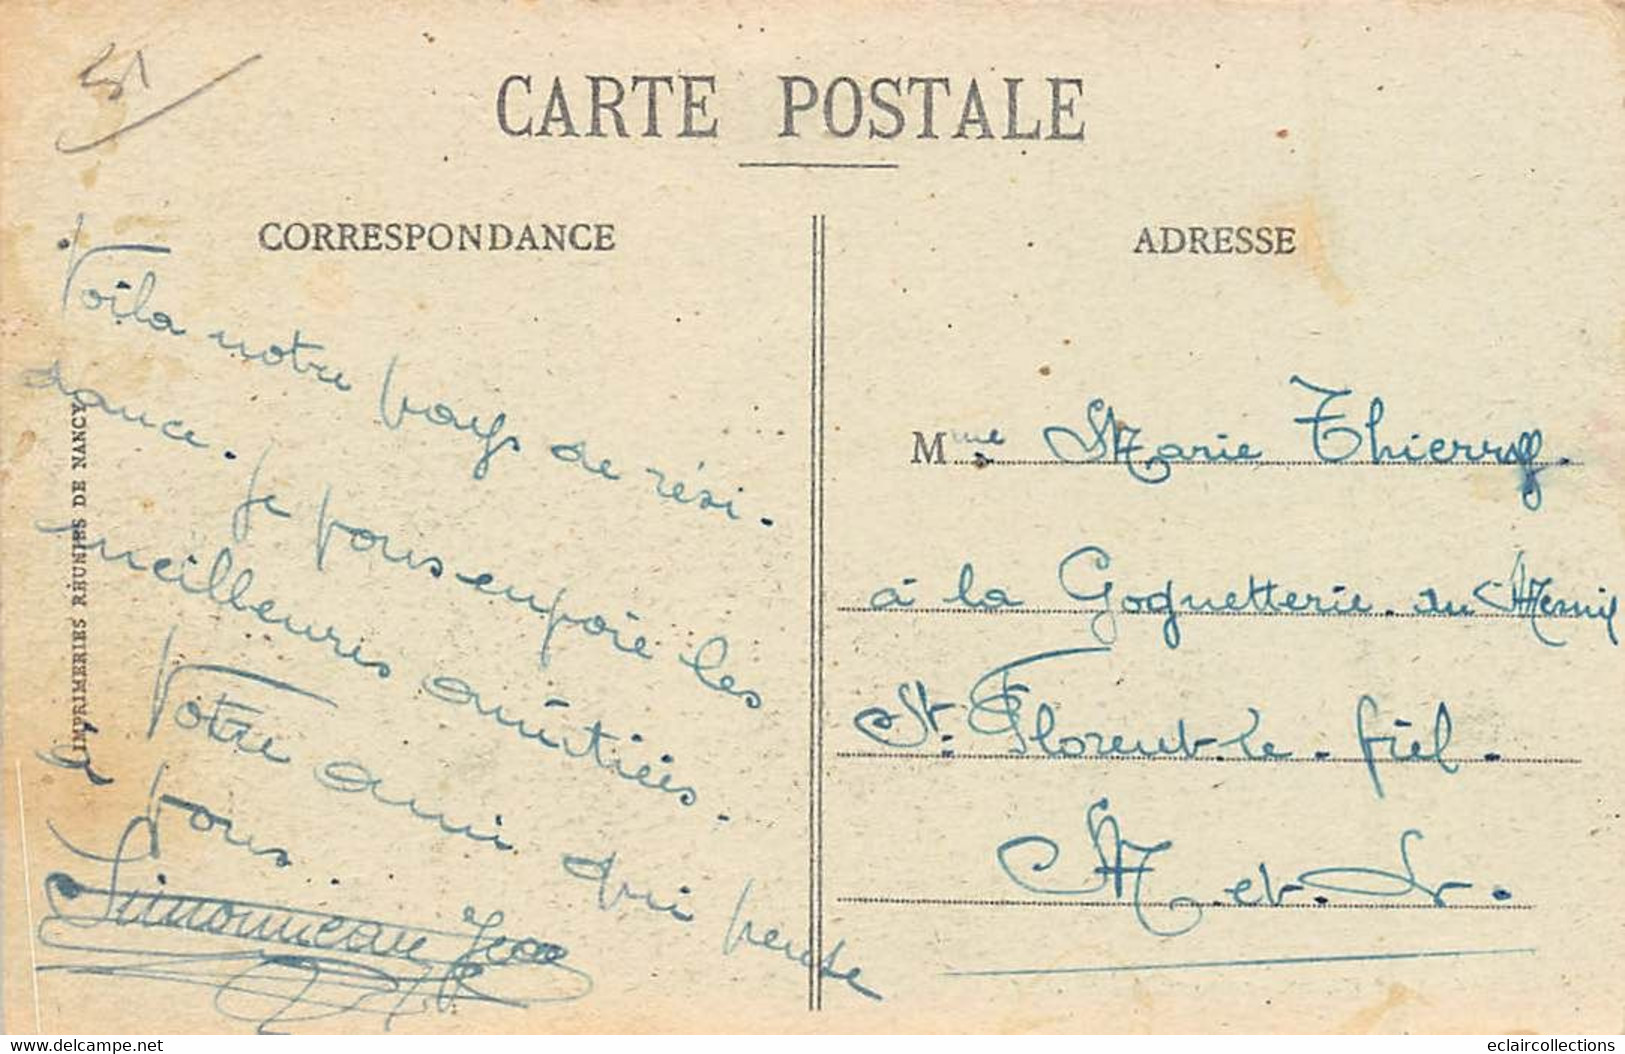 51
CARTE POSTALE
CORRESPONDANCE
ADRESSE
Voila notre pays de rési-
dance. Je vous envoie les
meilleures amitiées.
Votre ami qui pense
à vous..
Simonneau Jean
IMPRIMERIES RÉUNIES DE NANCY
Mme Marie Thierry.
à la Goguetterie. du Mesnil
St. Florent-le-fiel.
M-et-L.
delcampe.net
eclaircollections